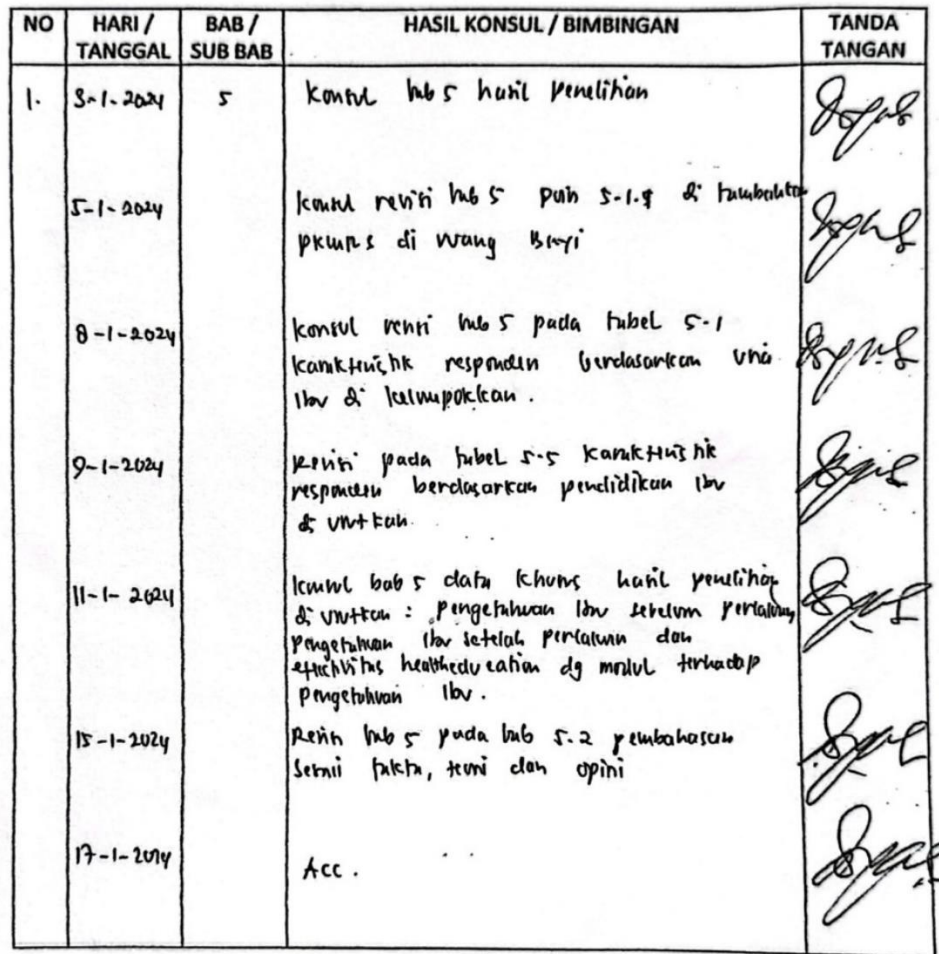 NO HARI / TANGGAL BAB / SUB BAB HASIL KONSUL / BIMBINGAN TANDA TANGAN
1. 3-1-2024 5 Konsul bab 5 hasil penelitian
5-1-2024 konsul revisi bab 5 poin 5-1.4 di tambahkan
PKMRS di ruang Bayi
8-1-2024 konsul revisi bab 5 pada tabel 5-1
karakteristik responden berdasarkan usia
ibu di kelompokkan.
9-1-2024 Revisi pada tabel 5-5 karakteristik
responden berdasarkan pendidikan ibu
di urutkan
11-1-2024 konsul bab 5 data khusus hasil penelitian
di urutkan : pengetahuan ibu sebelum perlakuan,
pengetahuan ibu setelah perlakuan dan
efektivitas healtheducation dg modul terhadap
pengetahuan ibu.
15-1-2024 Revisi bab 5 pada bab 5.2 pembahasan
sesuai fakta, teori dan opini
17-1-2024 Acc.